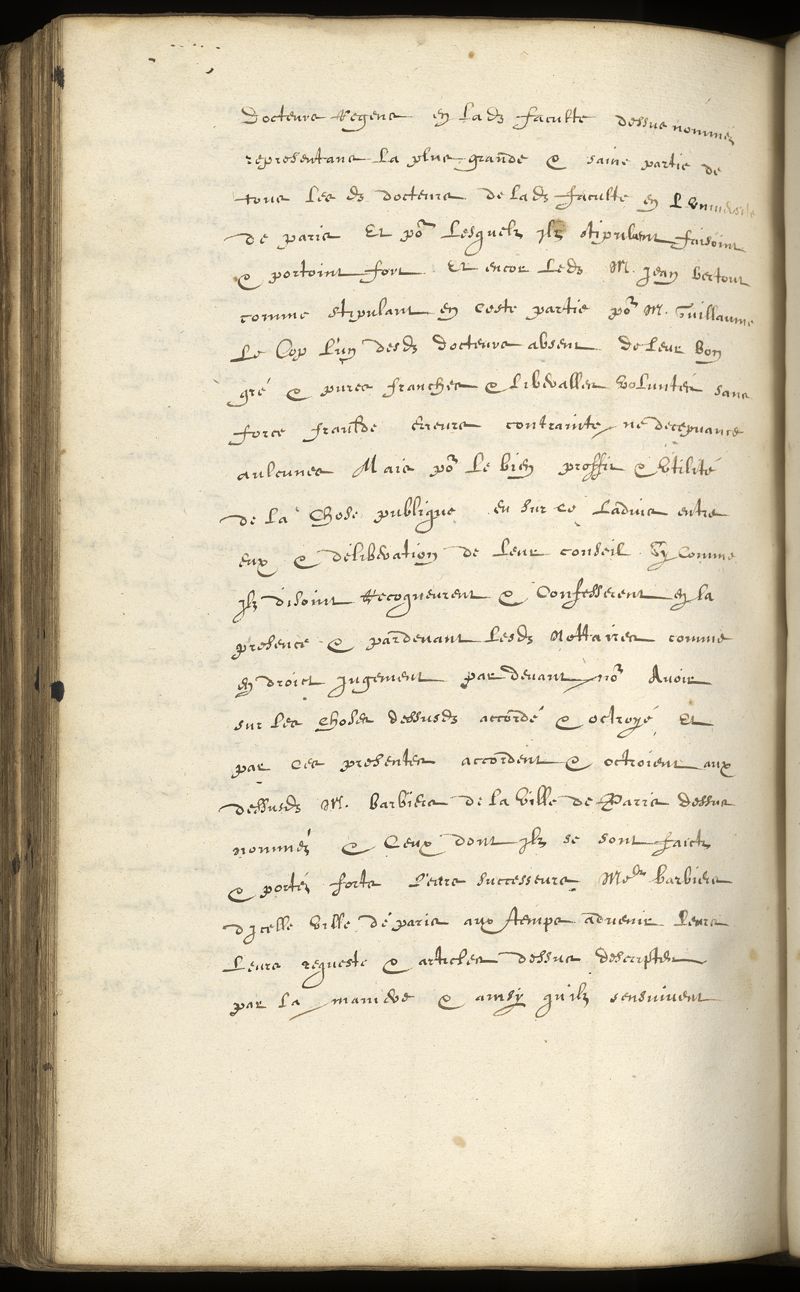 docteurs Regens en lade faculte dessus nommez
representans la plus grande & saine partie de
tous les ds docteurs de lade faculte en Luniversite
de paris Et por lesquelz ilz stipulent faisoint
& portoint fort. Et encor leds M. Jean Bertout
comme stipulant en ceste partie por M. Guillaume
Le Cop l'un desds docteurs absent de leur bon
gré & pures franches & liberalles voluntés sans
force fraulde erreurs contrainte ne decepvance
aulcunes Mais por le bien proffit & utilité
de la chose publique eu sur ce ladvis entre
eux & deliberation de leur conseil sy comme
ilz disoint Recogneurent & Confesserent en la
presence & pardevant lesds Nottaires comme
en droict jugement par devant nor Avoir
sur les choses dessusds accordé & octroyé Et
par ces presentes accordent & octroient aux
dessusds M. barbiers de la ville de Paris dessus
nommés & Ceux dont ilz se sont faictz
& portés forts leurs successeurs Mes barbiers
dicelle ville de paris aux temps advenir leurs
Leurs requeste & articles dessus descriptes
par la maniere & ainsy qu'ilz sensuivent